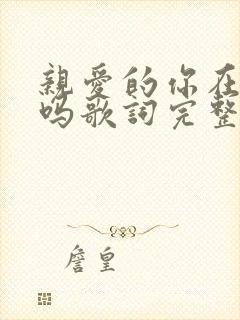 親愛的你在
嗎歌詞完整
詹皇